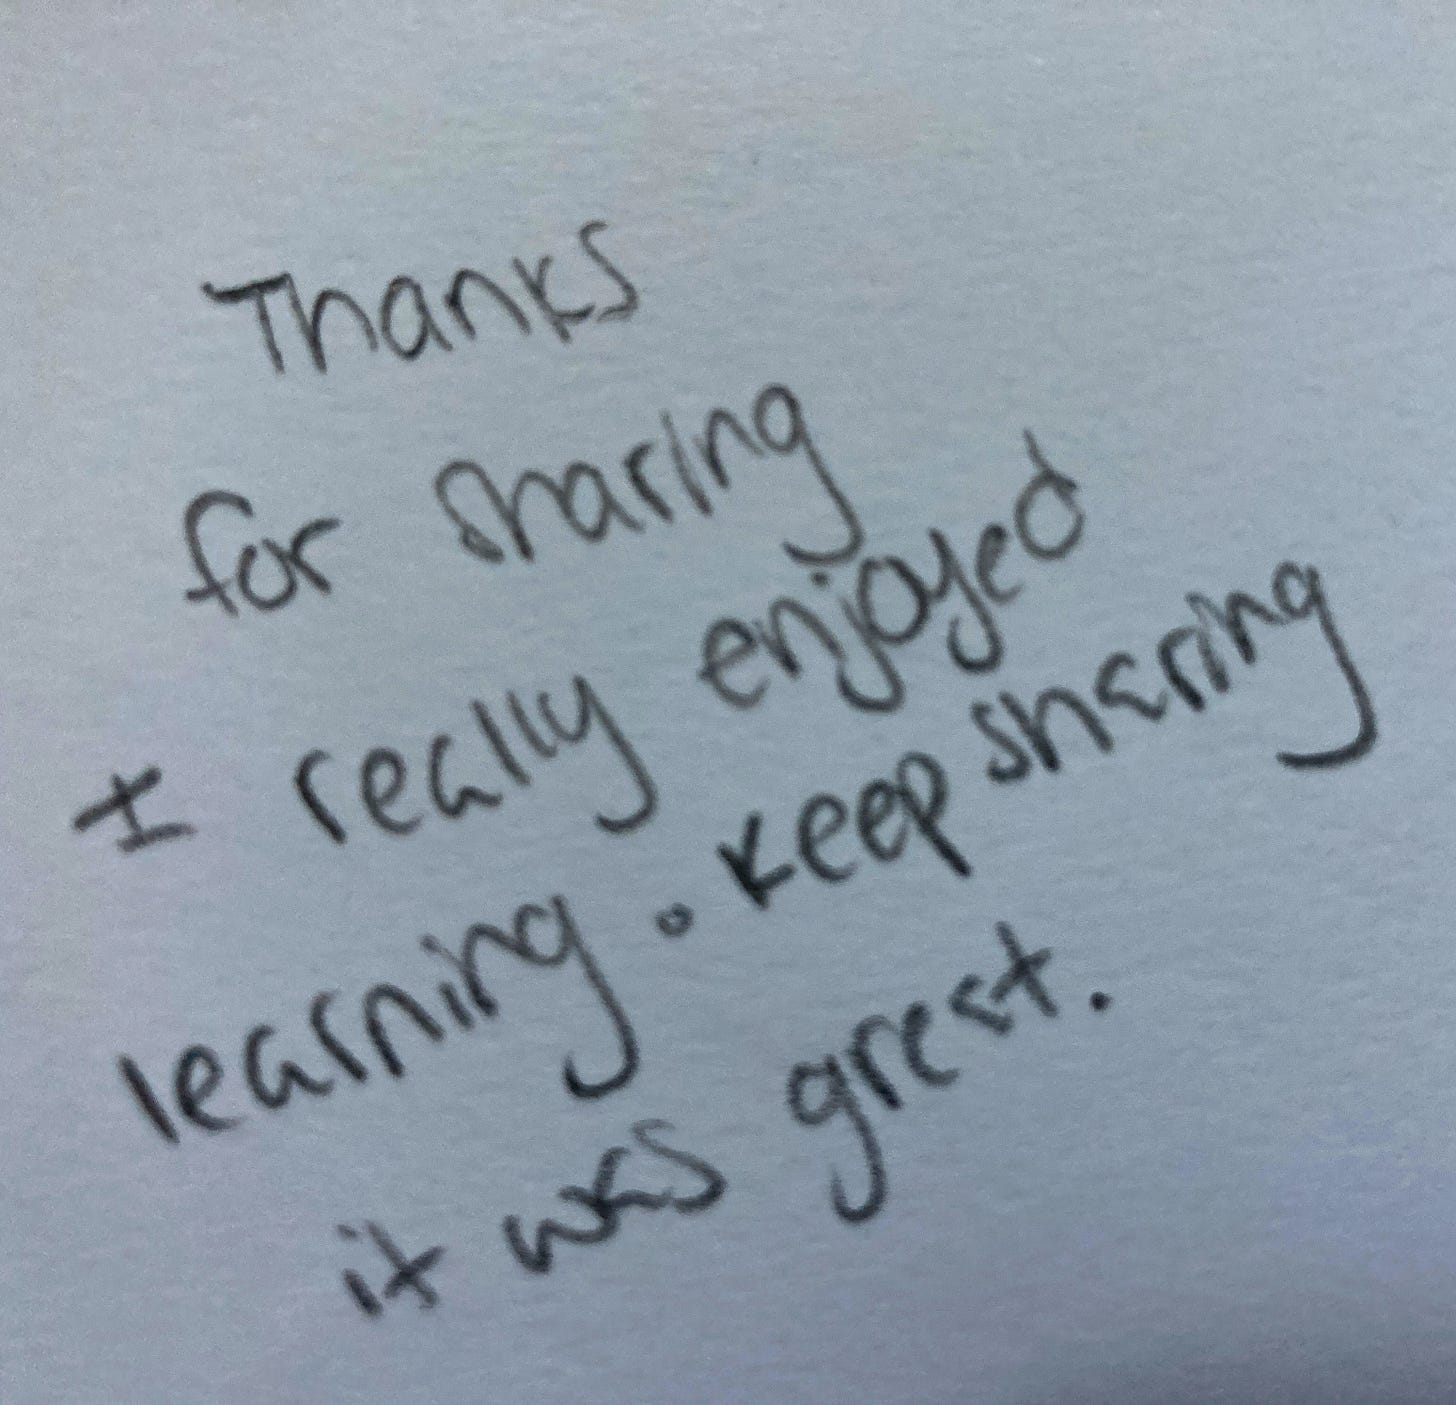 Thanks
for sharing
I really enjoyed
learning. Keep sharing
it was great.